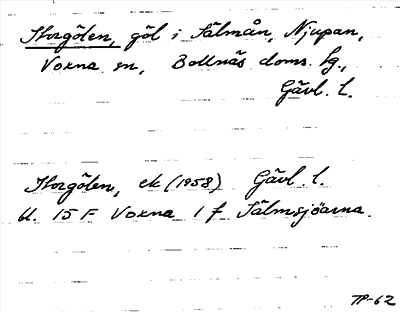 Storgölen, göl i Sälmån, Njupan,
Voxna sn, Bollnäs doms. fg.,
Gävl. l.
Storgölen, ek (1958) Gävl. l.
bl. 15 F Voxna 1 f Sälmsjöarna.
TP-62